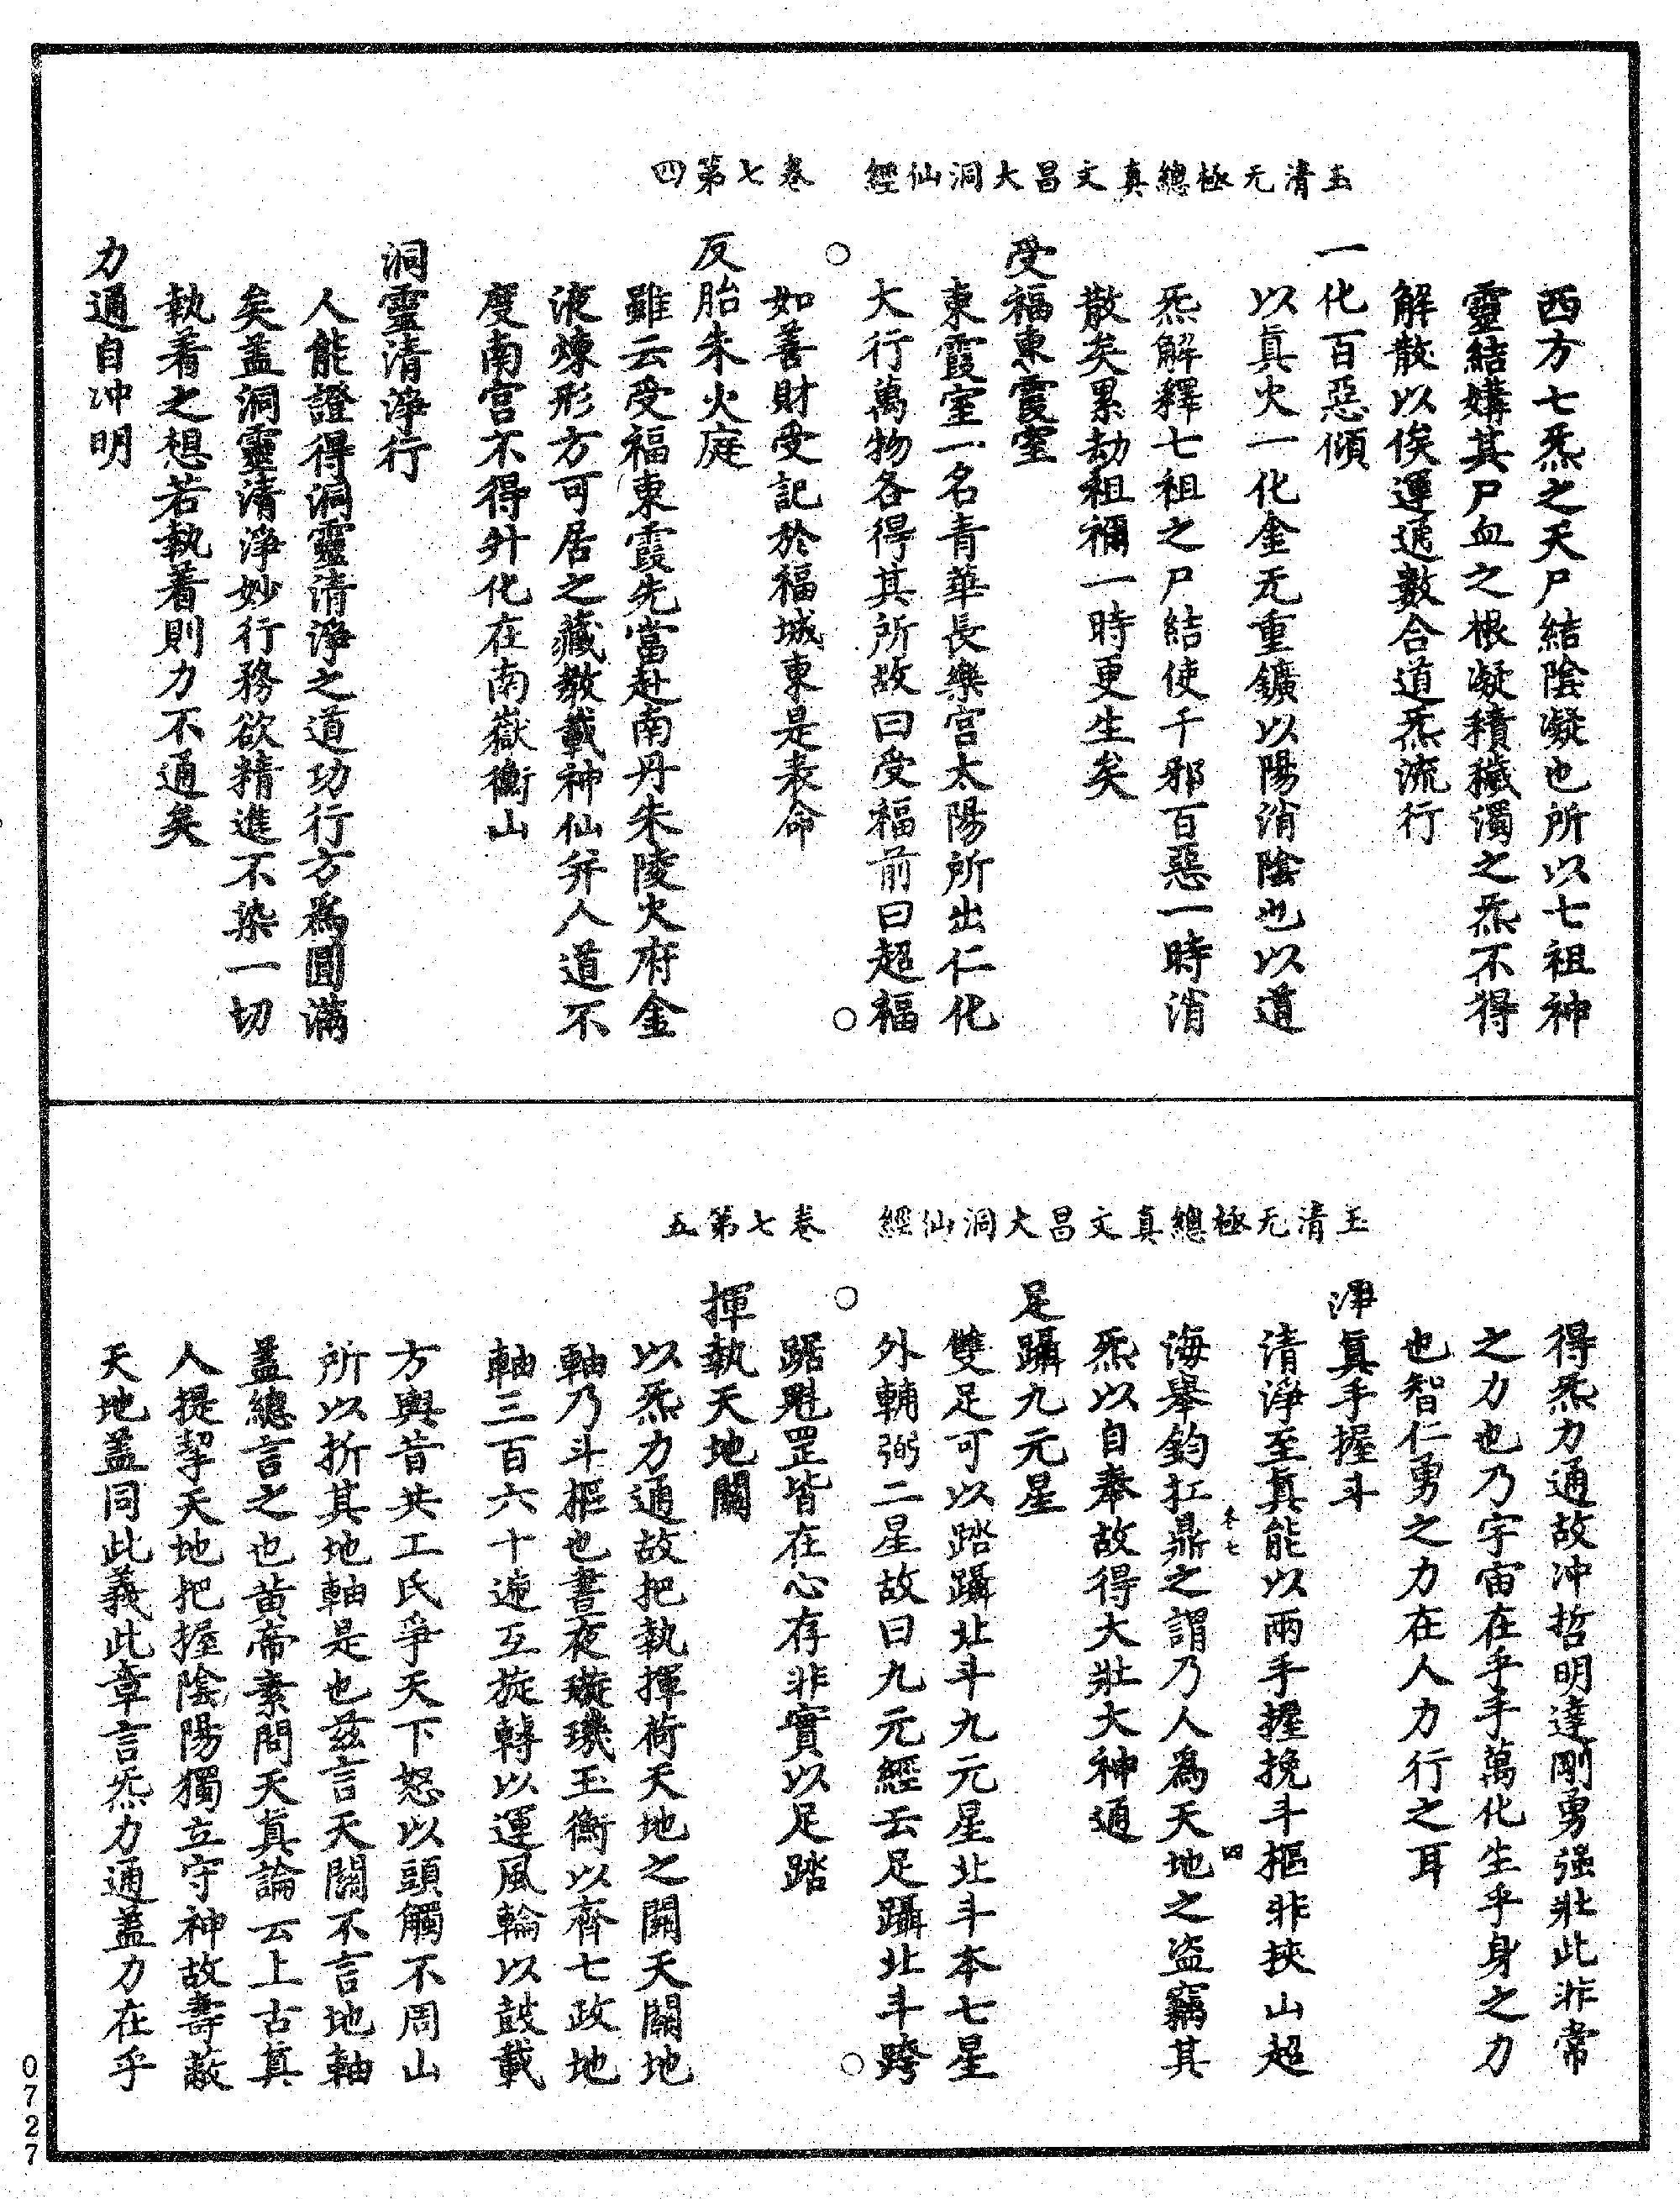 玉清无極總真文昌大洞仙經　卷七第四
西方七炁之天尸結陰凝也所以七祖神
靈結媾其尸血之根凝積穢濁之炁不得
解散以俟運通數合道炁流行
一化百惡傾
以真火一化金无重鑛以陽消陰也以道
炁解釋七祖之尸結使千邪百惡一時消
散矣累劫祖禰一時更生矣
受福東霞室
東霞室一名青華長樂宮太陽所出仁化
大行萬物各得其所故曰受福前曰超福
○　○
如善財受記於福城東是表命
反胎朱火庭
雖云受福東霞先當赴南丹朱陵火府金
液煉形方可居之藏教載神仙并人道不
度南宮不得升化在南嶽衡山
洞靈清淨行
人能證得洞靈清淨之道功行方爲圓滿
矣蓋洞靈清淨妙行務欲精進不染一切
執着之想若執着則力不通矣
力通自冲明
玉清无極總真文昌大洞仙經　卷七第五
得炁力通故冲哲明達剛勇强壯此非常
之力也乃宇宙在乎手萬化生乎身之力
也智仁勇之力在人力行之耳
淨真手握斗
清淨至真能以兩手握挽斗樞非挾山超
卷七　四
海舉鈞扛鼎之謂乃人爲天地之盗竊其
炁以自奉故得大壯大神通
足躡九元星
雙足可以踏躡北斗九元星北斗本七星
外輔弼二星故曰九元經云足躡北斗跨
○　○
踞魁罡皆在心存非實以足踏
揮執天地關
以炁力通故把執揮荷天地之關天關地
軸乃斗樞也晝夜璇璣玉衡以齊七政地
軸三百六十迤互旋轉以運風輪以鼓載
方輿昔共工氏爭天下怒以頭觸不周山
所以折其地軸是也兹言天關不言地軸
蓋總言之也黄帝素問天真論云上古真
人提挈天地把握陰陽獨立守神故壽蔽
天地蓋同此義此章言炁力通蓋力在乎
0727